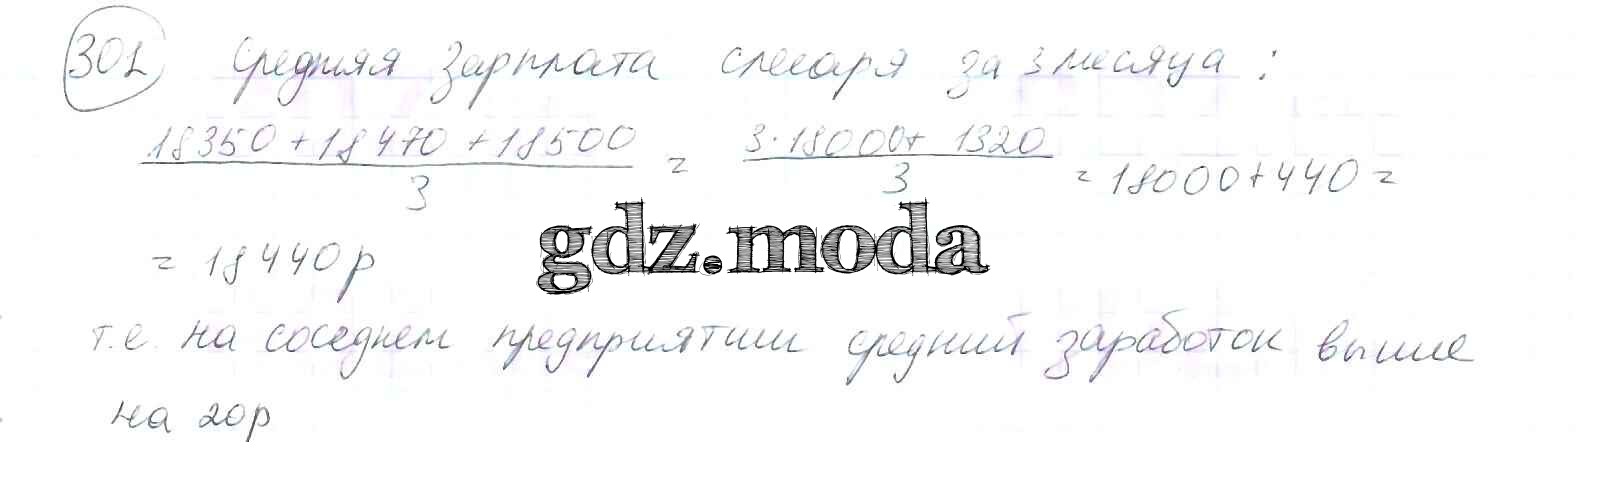 301 Средняя зарплата слесаря за 3 месяца :
18350 + 18470 + 18500 / 3 = 3·18000 + 1320 / 3 = 18000 + 440 =
gdz.moda
= 18440 р
т.е. на соседнем предприятии средний заработок выше
на 20р